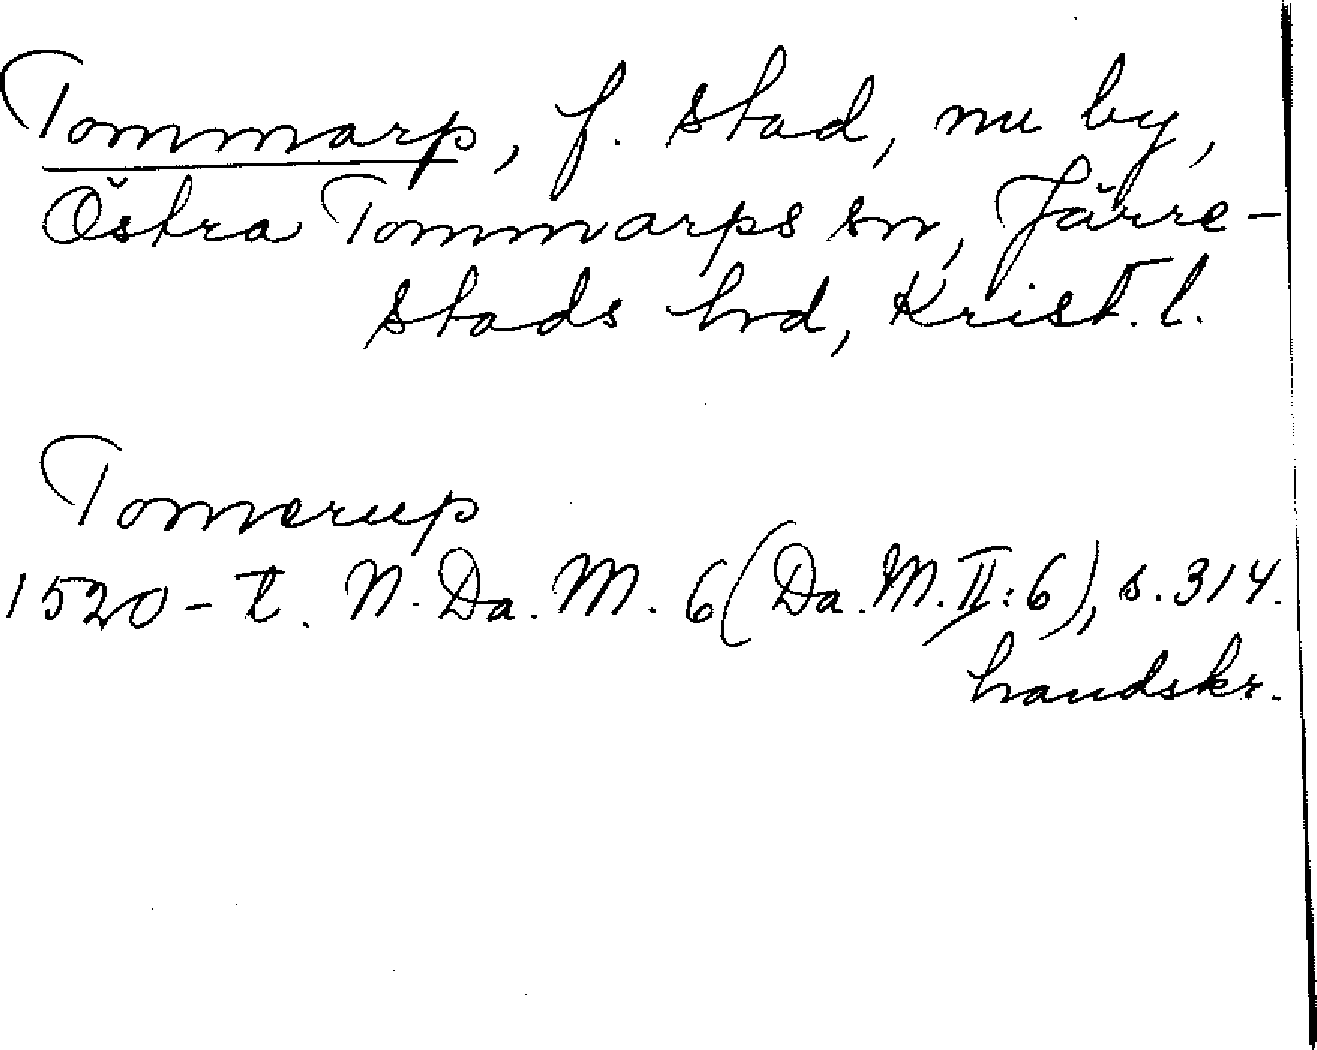 Tommarp, f. stad, nu by,
Östra Tommarps sn, Järre-
stads hrd, Krist. l.
Tomerup
1520-t. N. Da. M. 6 (Da. M. II: 6), s. 314.
handskr.